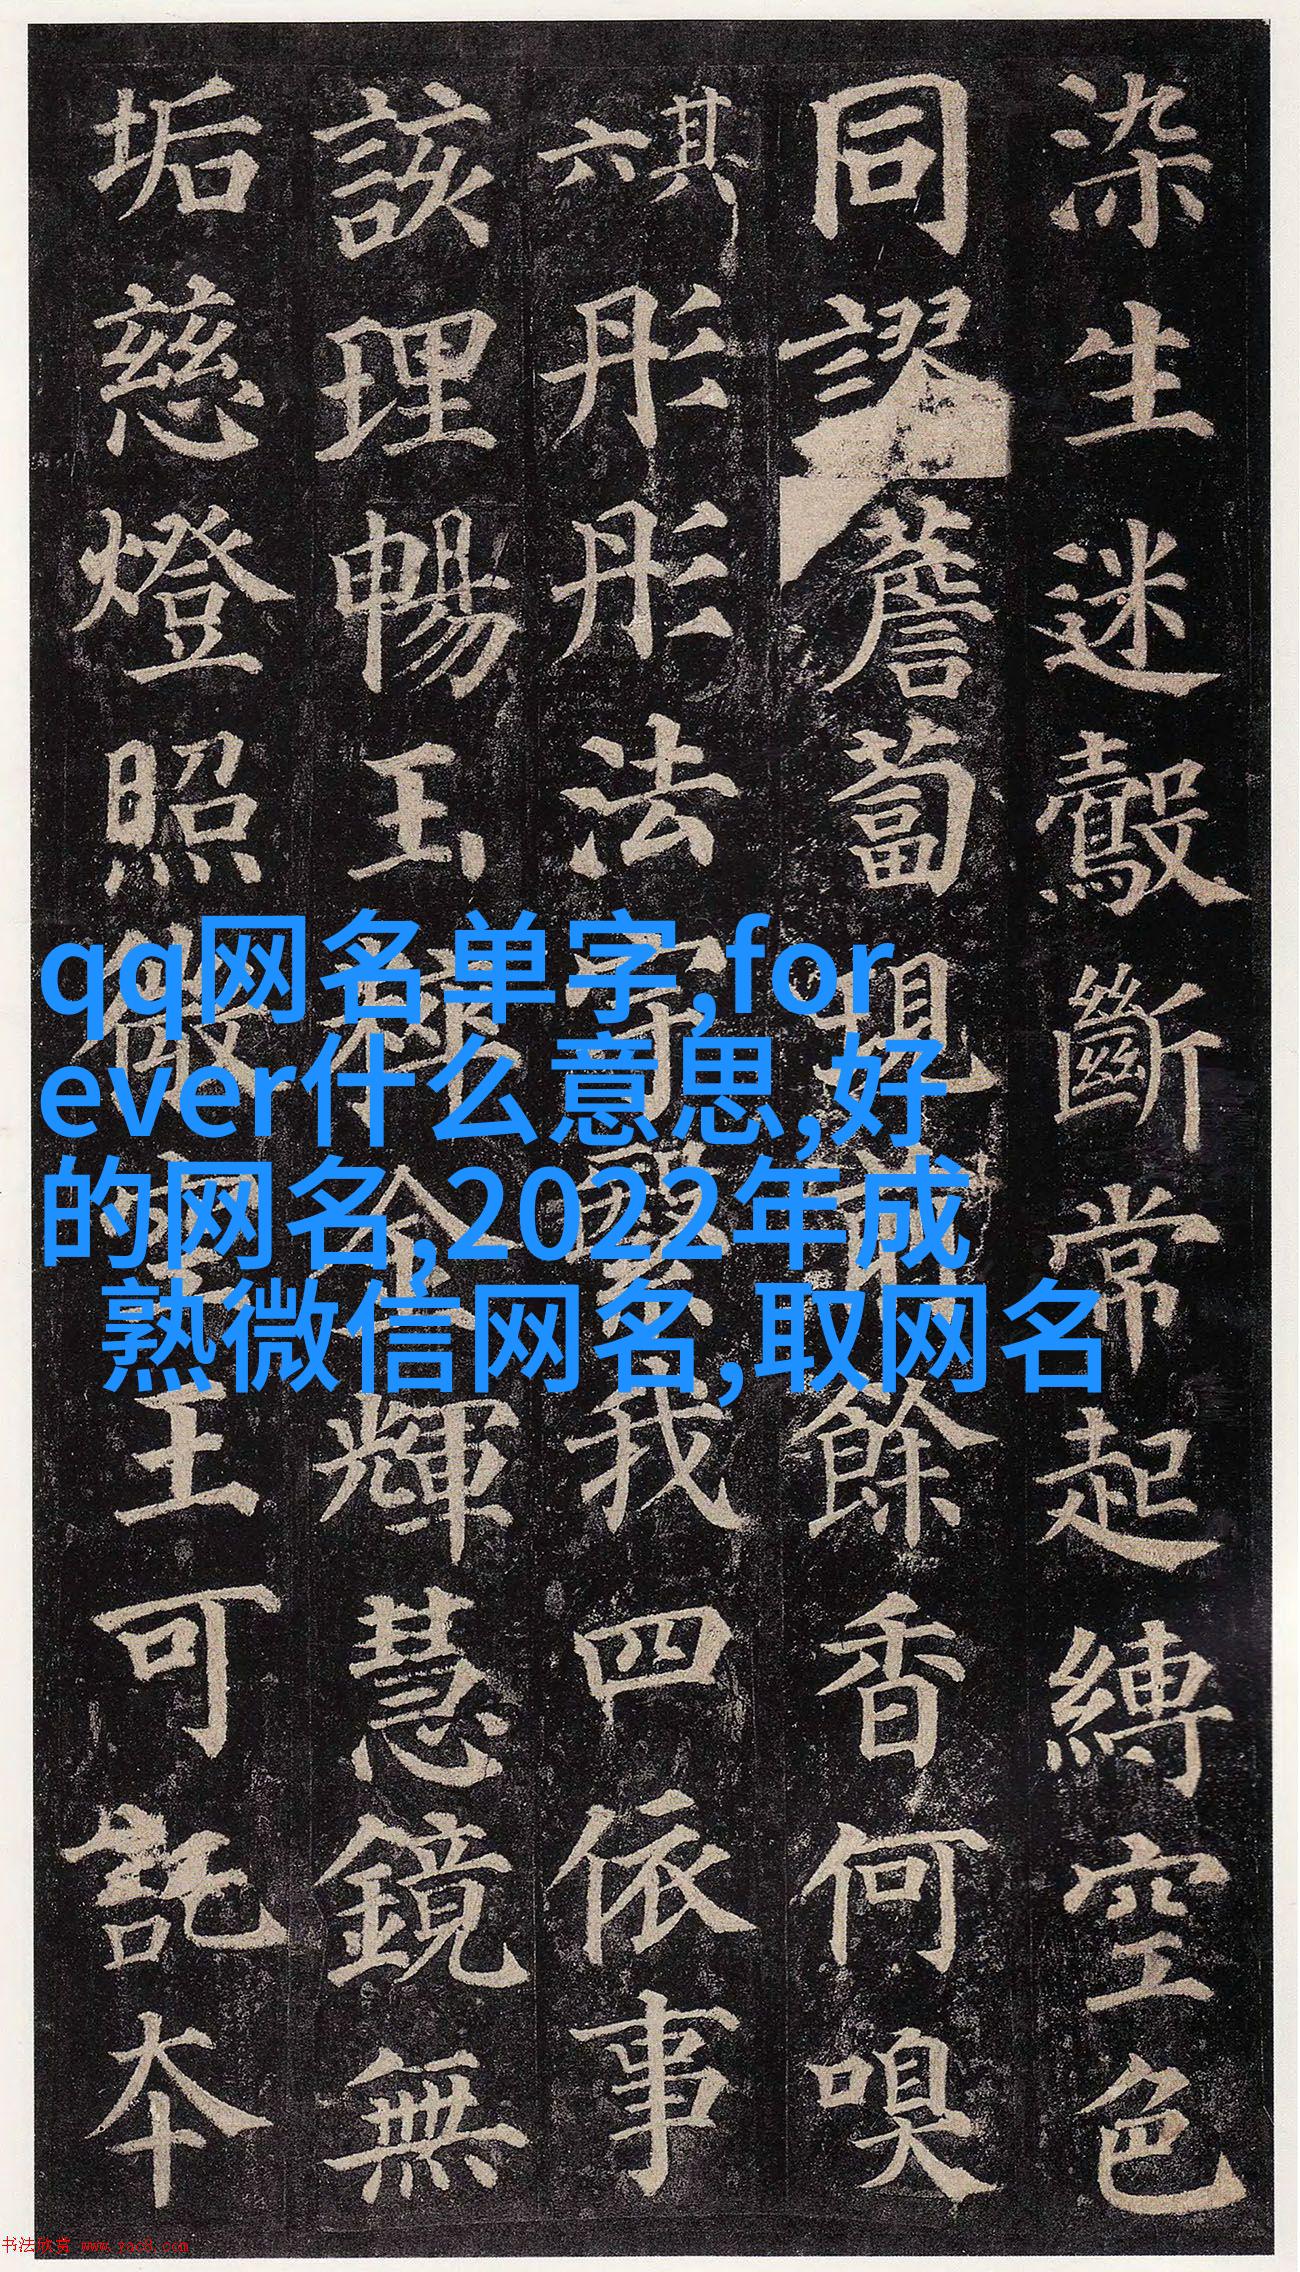 染生迷鷇斷常起縛空色
同謬薝蔔現前餘香何嗅
其六彤彤法宇繄我四依事
該理暢玉粹金輝慧鏡無
垢慈燈照微空王可託本
qq网名单字,for
ever什么意思,好
的网名,2022年成
熟微信网名,取网名
书法欣赏 www.yac8.com